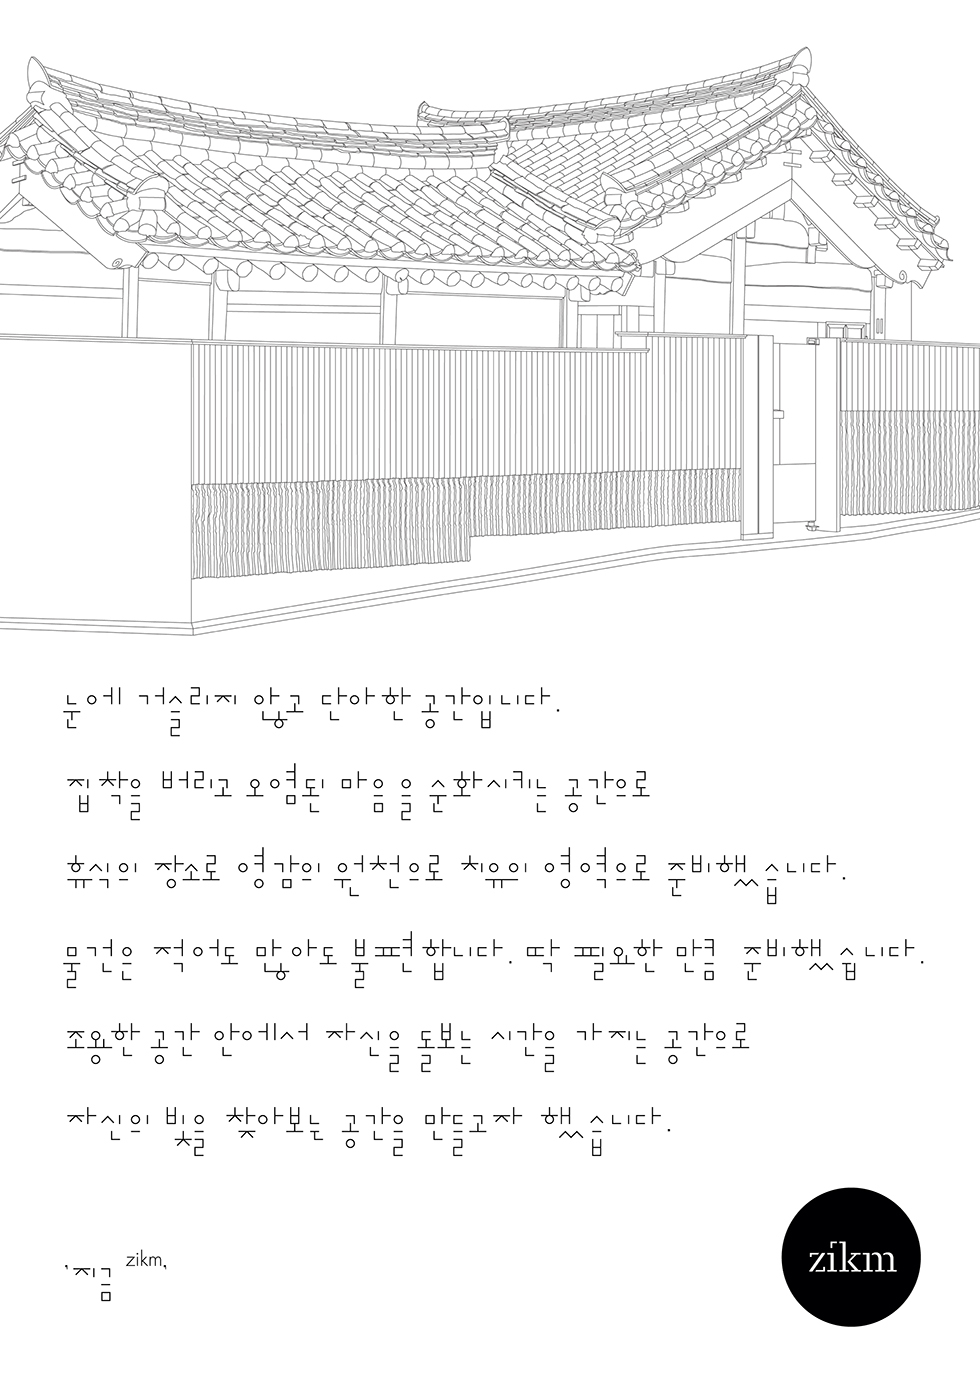 눈에 거슬리지 않고 단아한 공간입니다.
집착을 버리고 오염된 마음을 순화시키는 공간으로
휴식의 장소로 영감의 원천으로 치유의 영역으로 준비했습니다.
물건은 적어도 많아도 불편합니다. 딱 필요한 만큼 준비했습니다.
조용한 공간 안에서 자신을 돌보는 시간을 가지는 공간으로
자신의 빛을 찾아보는 공간을 만들고자 했습니다.
'지금 zikm,
zikm